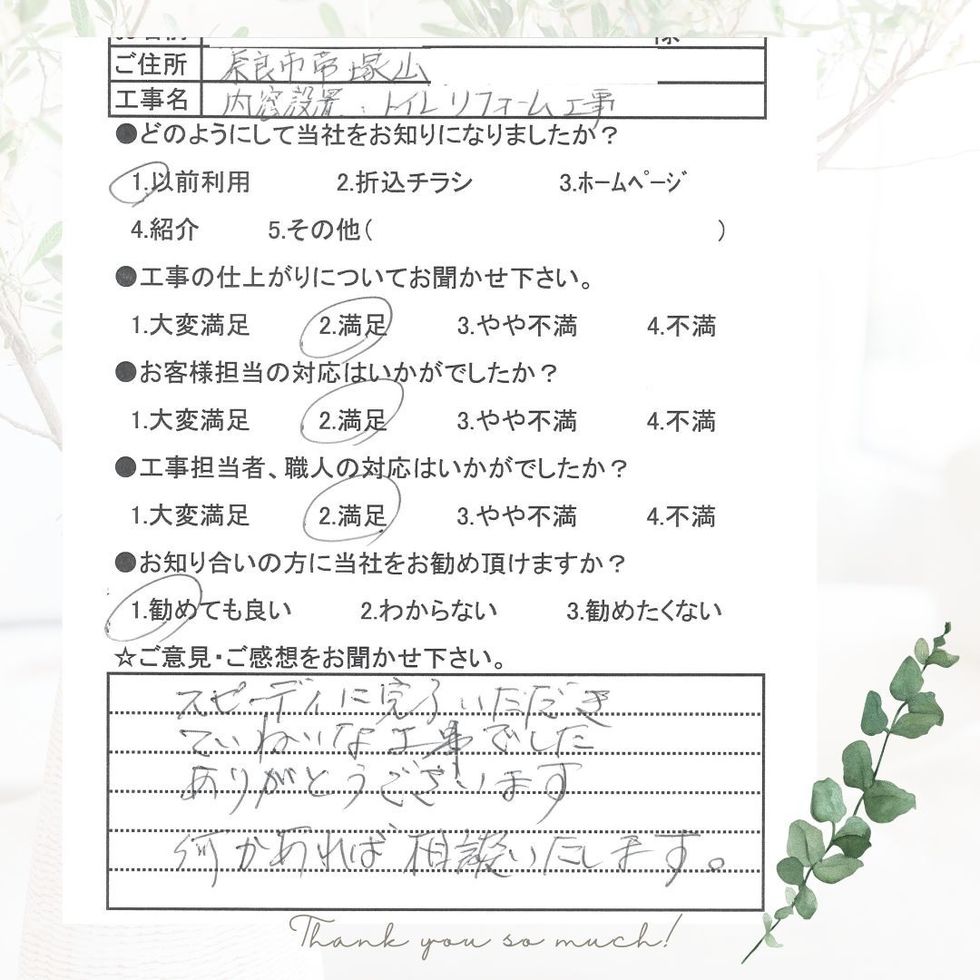 ご住所 奈良市帝塚山
工事名 内窓設置・トイレリフォーム工事
●どのようにして当社をお知りになりましたか？
1.以前利用 2.折込チラシ 3.ﾎｰﾑﾍﾟｰｼﾞ
4.紹介 5.その他( )
●工事の仕上がりについてお聞かせ下さい。
1.大変満足 2.満足 3.やや不満 4.不満
●お客様担当の対応はいかがでしたか？
1.大変満足 2.満足 3.やや不満 4.不満
●工事担当者、職人の対応はいかがでしたか？
1.大変満足 2.満足 3.やや不満 4.不満
●お知り合いの方に当社をお勧め頂けますか？
1.勧めても良い 2.わからない 3.勧めたくない
☆ご意見・ご感想をお聞かせ下さい。
スピーディに完了いただき
ていねいな工事でした
ありがとうございます
何かあれば相談いたします。
Thank you so much!